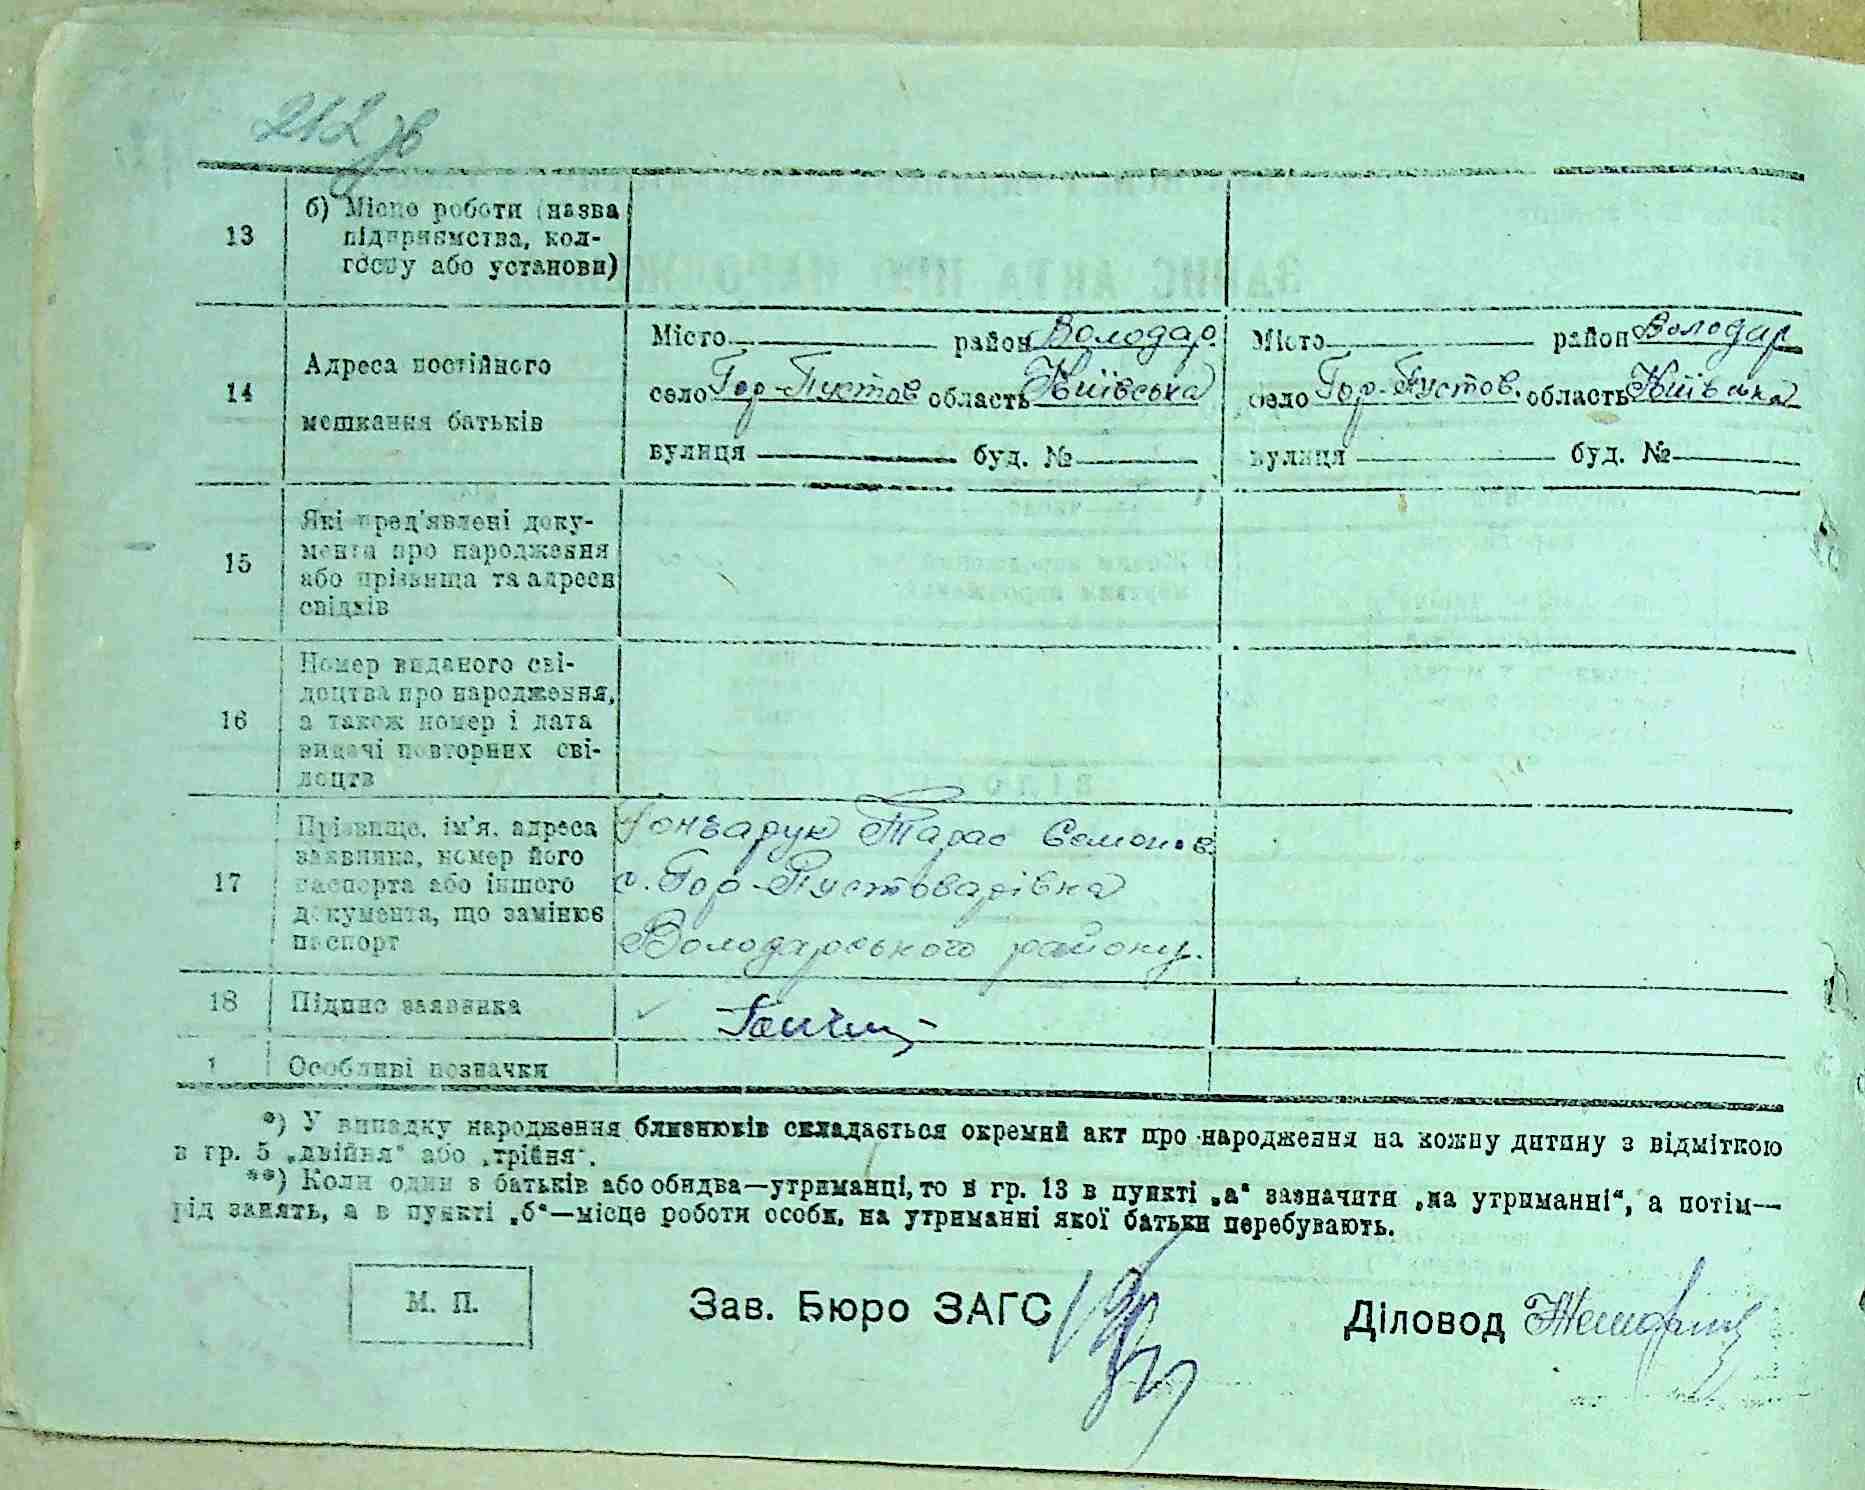 212 зв
13
б) Місце роботи (назва
підприємства, кол-
госпу або установи)
14
Адреса постійного
мешкання батьків
Місто район Володар.
село Гор-Пустов область Київська
вулиця буд. №
Місто район Володар
село Гор-Пустов. область Київська
вулиця буд. №
15
Які пред'явлені доку-
мента про народження
або прізвища та адреси
свідків
16
Номер виданого сві-
доцтва про народження,
а також номер і дата
видачі повторних сві-
доцтв
17
Прізвище, ім'я, адреса
заявника, номер його
паспорта або іншого
документа, що замінює
паспорт
Гончарук Тарас Семон.в.
с. Гор-Пустоварівка
Володарського району.
18
Підпис заявника
1
Особливі позначки
*) У випадку народження близнюків складається окремий акт про народження на кожну дитину з відміткою
в гр. 5 „двійня" або „трійня".
**) Коли один з батьків або обидва—утриманці, то в гр. 13 в пункті „а" зазначити „на утриманні", а потім—
рід занять, а в пункті „б"—місце роботи особи, на утриманні якої батьки перебувають.
М. П.
Зав. Бюро ЗАГС
Діловод